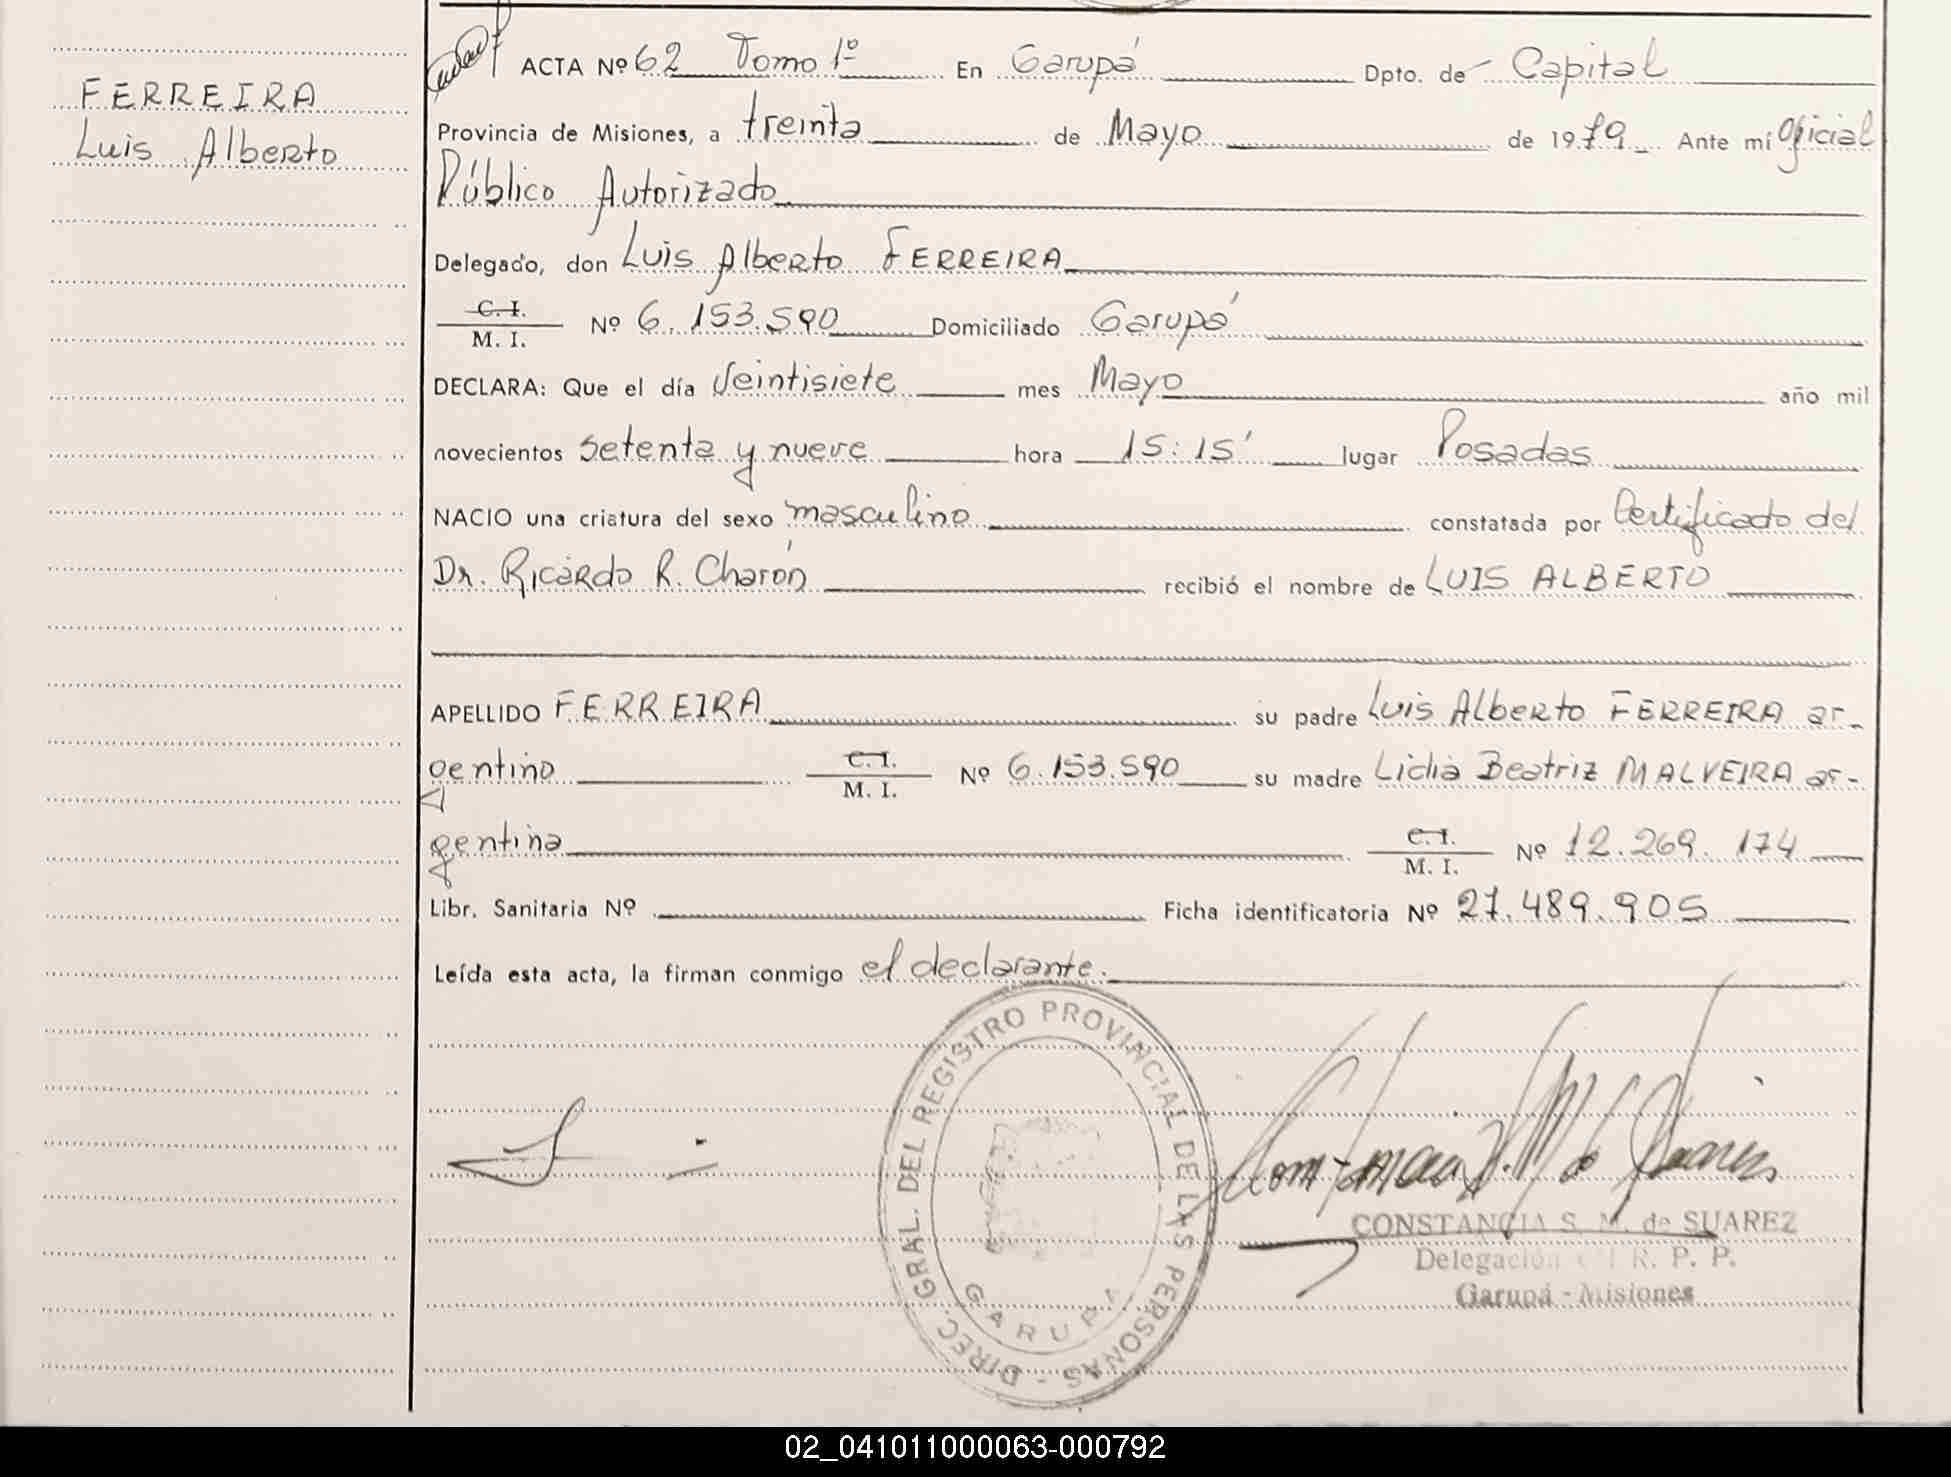 FERREIRA
Luis Alberto
ACTA Nº 62 Tomo 1º En Garupá Dpto. de Capital
Provincia de Misiones, a treinta de Mayo de 1979 Ante mí Oficial
Público Autorizado
Delegado, don Luis Alberto FERREIRA
C. I.
M. I. Nº 6.153.590 Domiciliado Garupá
DECLARA: Que el día Veintisiete mes Mayo año mil
novecientos setenta y nueve hora 15:15' lugar Posadas
NACIO una criatura del sexo masculino constatada por Certificado del
Dr. Ricardo R. Charón recibió el nombre de LUIS ALBERTO
APELLIDO FERREIRA su padre Luis Alberto FERREIRA ar-
gentino C. I. M. I. Nº 6.153.590 su madre Lidia Beatriz MALVEIRA ar-
gentina C. I. M. I. Nº 12.269.174
Libr. Sanitaria Nº Ficha identificatoria Nº 27.489.905
Leída esta acta, la firman conmigo el declarante.
DIREC. GRAL. DEL REGISTRO PROVINCIAL DE LAS PERSONAS -
GARUPA
CONSTANCIA S. M. de SUAREZ
Delegación del R. P. P.
Garupá - Misiones
02_041011000063-000792